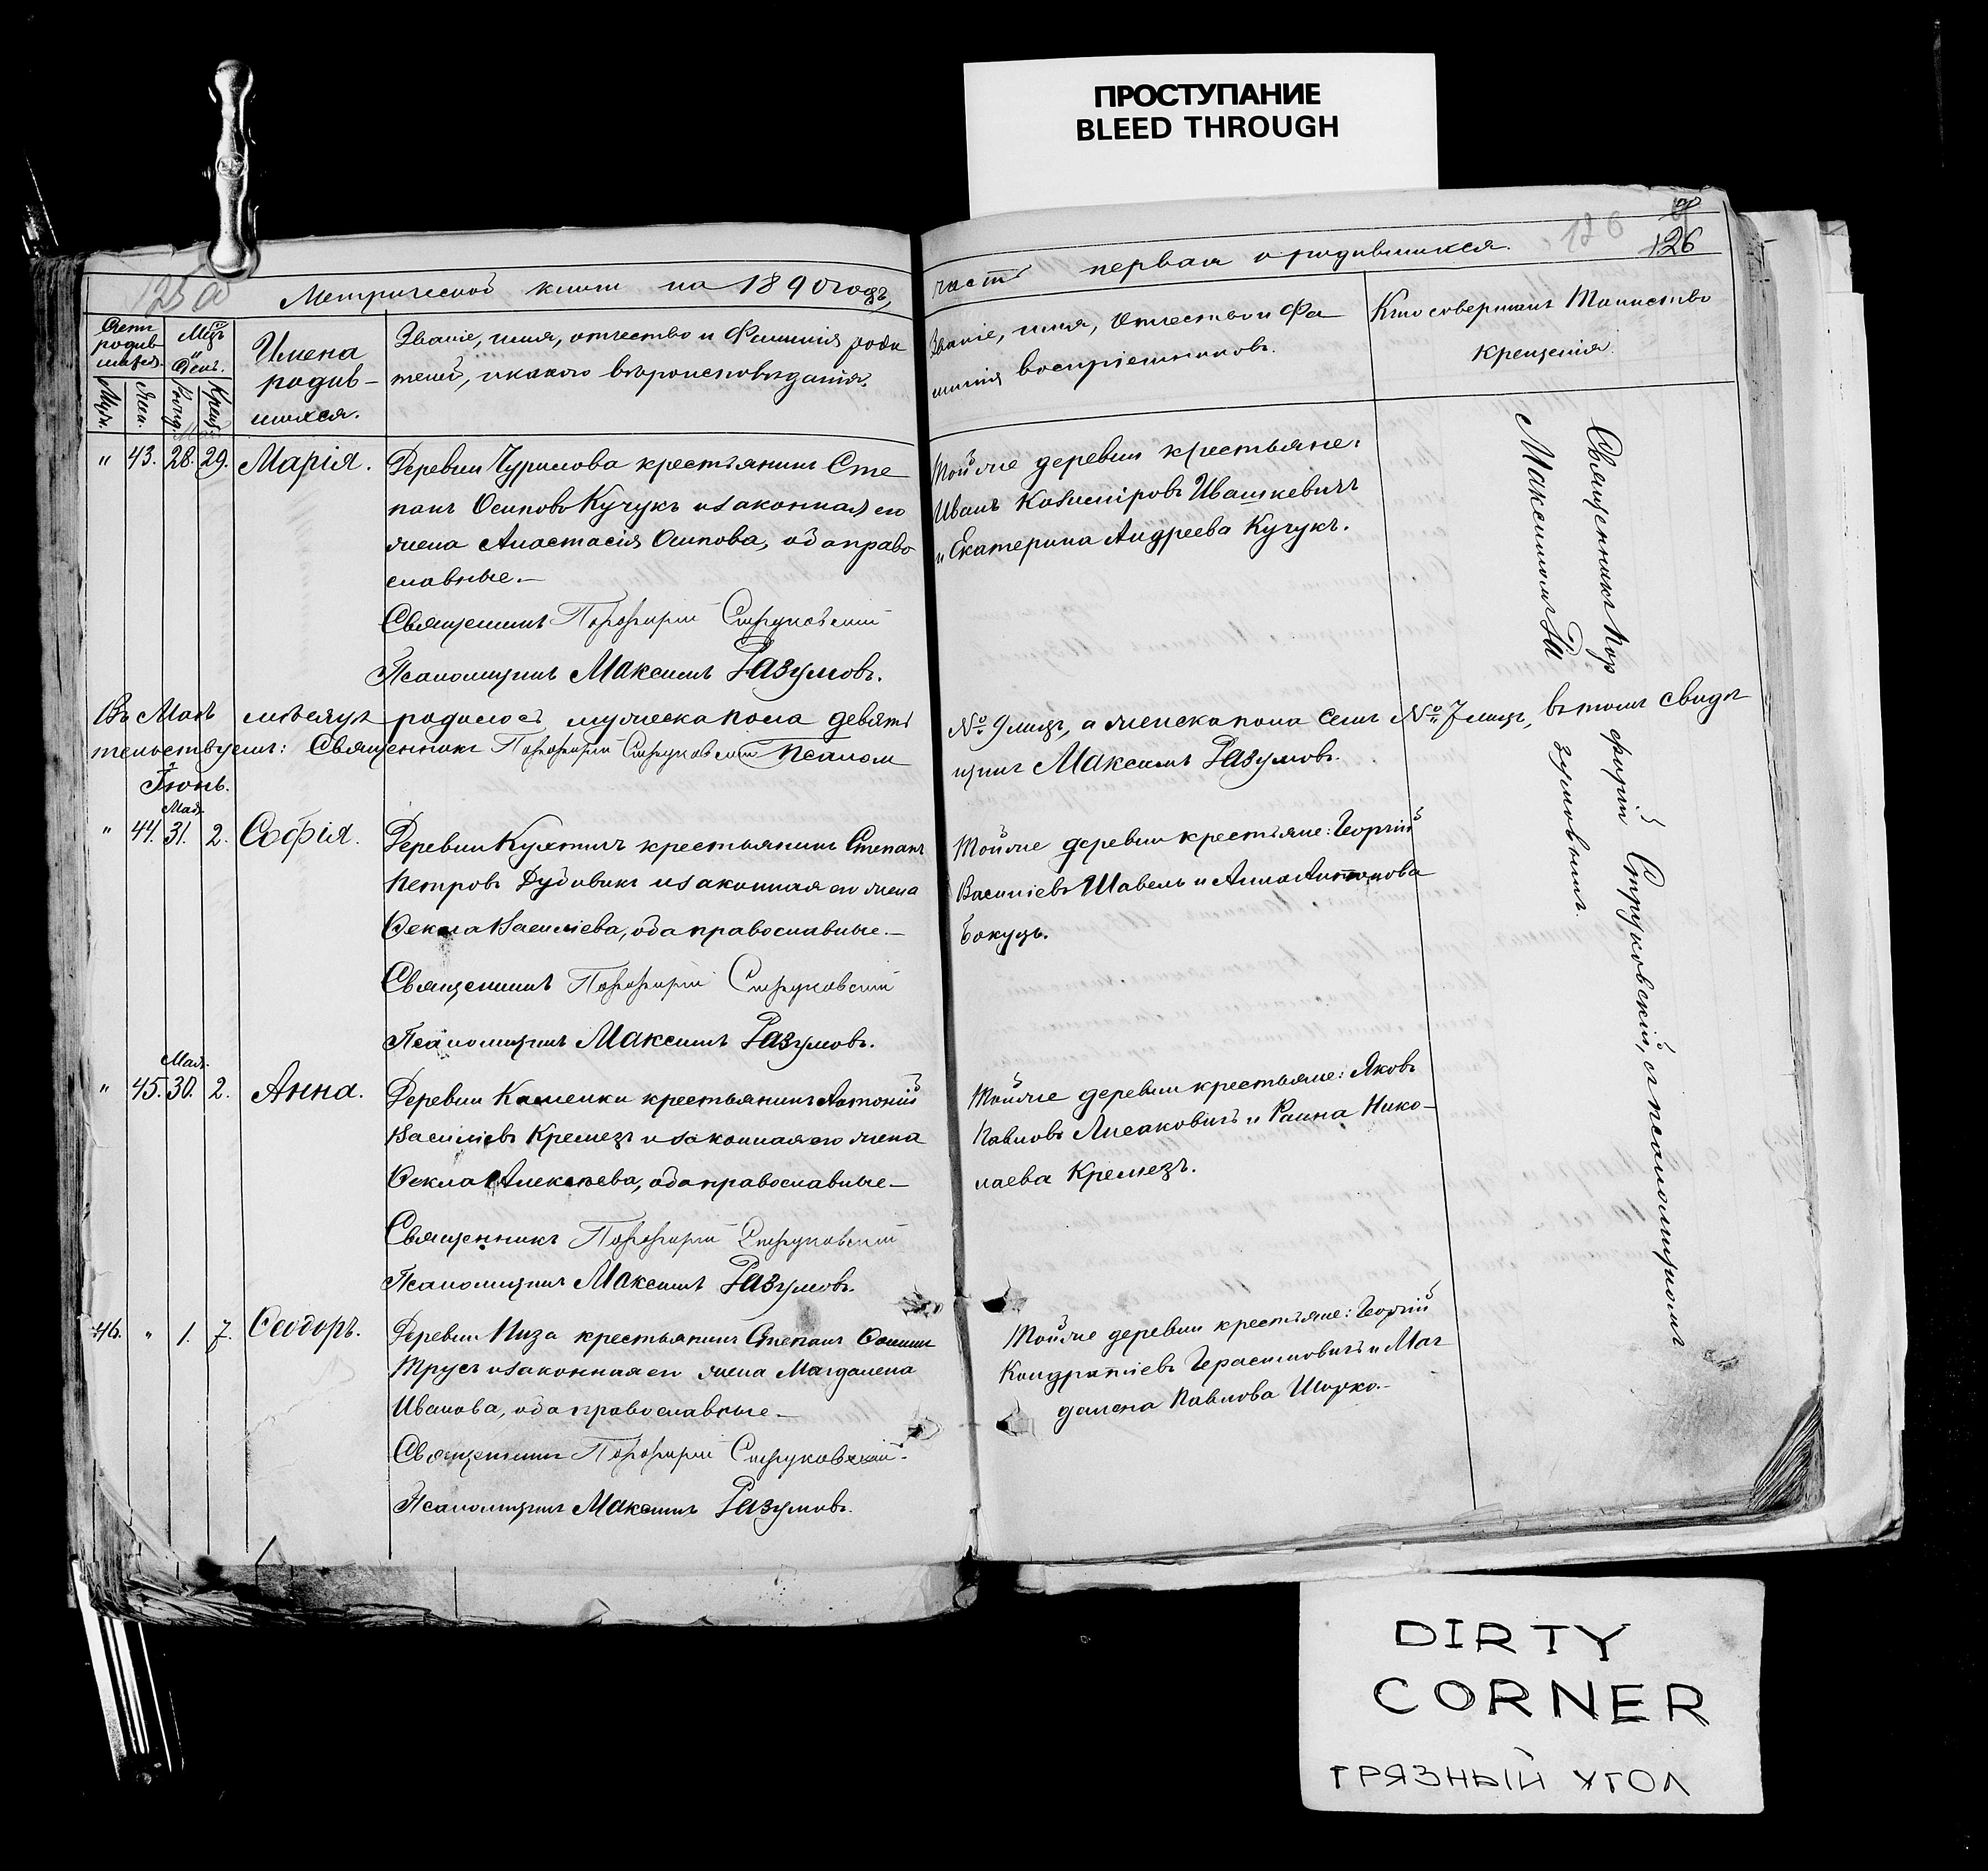 ПРОСТУПАНИЕ
BLEED THROUGH
126
126
Метрической книги на 1890 годъ,
часть первая о родившихся.
Счетъ родив-шихся.
Муж.
Жен.
Мѣц. и День.
Рожд.
Крещ.
Имена
родив-
шихся.
Званіе, имя, отчество и Фамилія роди
телей, и какого вѣроисповѣданія.
Званіе, имя, Отчество и Фа
милія воспріемниковъ.
Кто совершалъ Таинство
крещенія.
Май
" 43. 28. 29. Марія.
Деревни Чурилова крестьянинъ Сте
панъ Осиповъ Кучукъ и законная его
жена Анастасія Осипова, оба право
славные.—
Священникъ Порфирій Струковскій
Псаломщикъ Максимъ Разумовъ.
Той же деревни крестьяне:
Иванъ Казиміровъ Ивашкевичъ
и Екатерина Андреева Кучукъ.
Священникъ Пор фирій Струковскій, съ псаломщикомъ
Максимомъ Ра зумовымъ.
Въ Маѣ мѣсяцѣ родилось мужеска пола девять № 9 лицъ, а женска пола семь № 7 лицъ, въ томъ свидѣ
тельствуемъ: Священникъ Порфирій Струковскій Псалом щикъ Максимъ Разумовъ.
Іюнь.
Мая.
" 44. 31. 2. Софія.
Деревни Кухтичъ крестьянинъ Степанъ
Петровъ Дубовикъ и законная его жена
Ѳекла Васильева, оба православные.—
Священникъ Порфирій Струковскій
Псаломщикъ Максимъ Разумовъ.
Той же деревни крестьяне: Георгій
Василіевъ Шавель и Анна Антонова
Бокуцъ.
Мая.
" 45. 30. 2. Анна.
Деревни Каменки крестьянинъ Антоній
Василіевъ Кремезъ и законная его жена
Ѳекла Алексѣева, оба православные—
Священникъ Порфирій Струковскій
Псаломщикъ Максимъ Разумовъ.
Той же деревни крестьяне: Яковъ
Павловъ Лисаковичъ и Раина Нико-
лаева Кремезъ.
46. " 1. 7. Ѳеодоръ.
Деревни Низа крестьянинъ Степанъ Осипов
Трусъ и законная его жена Магдалена
Иванова, оба православные—
Священникъ Порфирій Струковскій.
Псаломщикъ Максимъ Разумовъ.
Той же деревни крестьяне: Георгій
Кондратіевъ Герасимовичъ и Маг
далена Павлова Шорко.—
DIRTY
CORNER
ГРЯЗНЫЙ УГОЛ